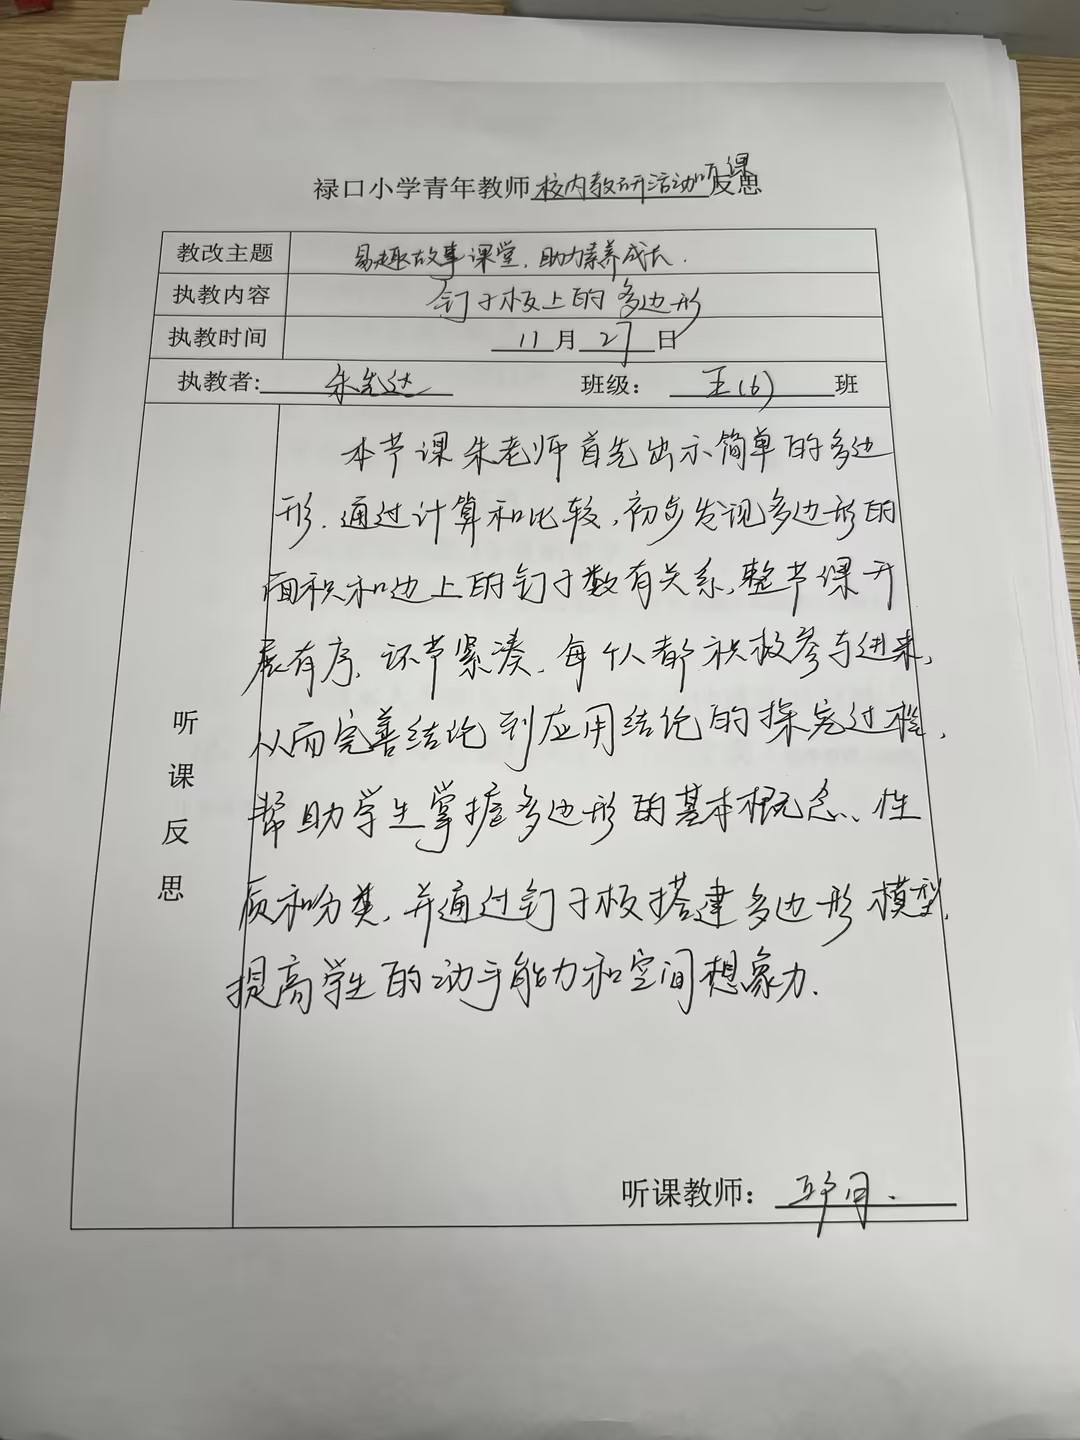 禄口小学青年教师校内教研活动听课反思
教改主题 易趣故事课堂,助力素养成长.
执教内容 钉子板上的多边形
执教时间 11月27日
执教者: 朱先达 班级: 五(6)班
听课反思
本节课朱老师首先出示简单的多边
形.通过计算和比较,初步发现多边形的
面积和边上的钉子数有关系,整节课开
展有序,环节紧凑,每个人都积极参与进来,
从而完善结论到应用结论的探究过程,
帮助学生掌握多边形的基本概念、性
质和分类,并通过钉子板搭建多边形模型,
提高学生的动手能力和空间想象力.
听课教师: